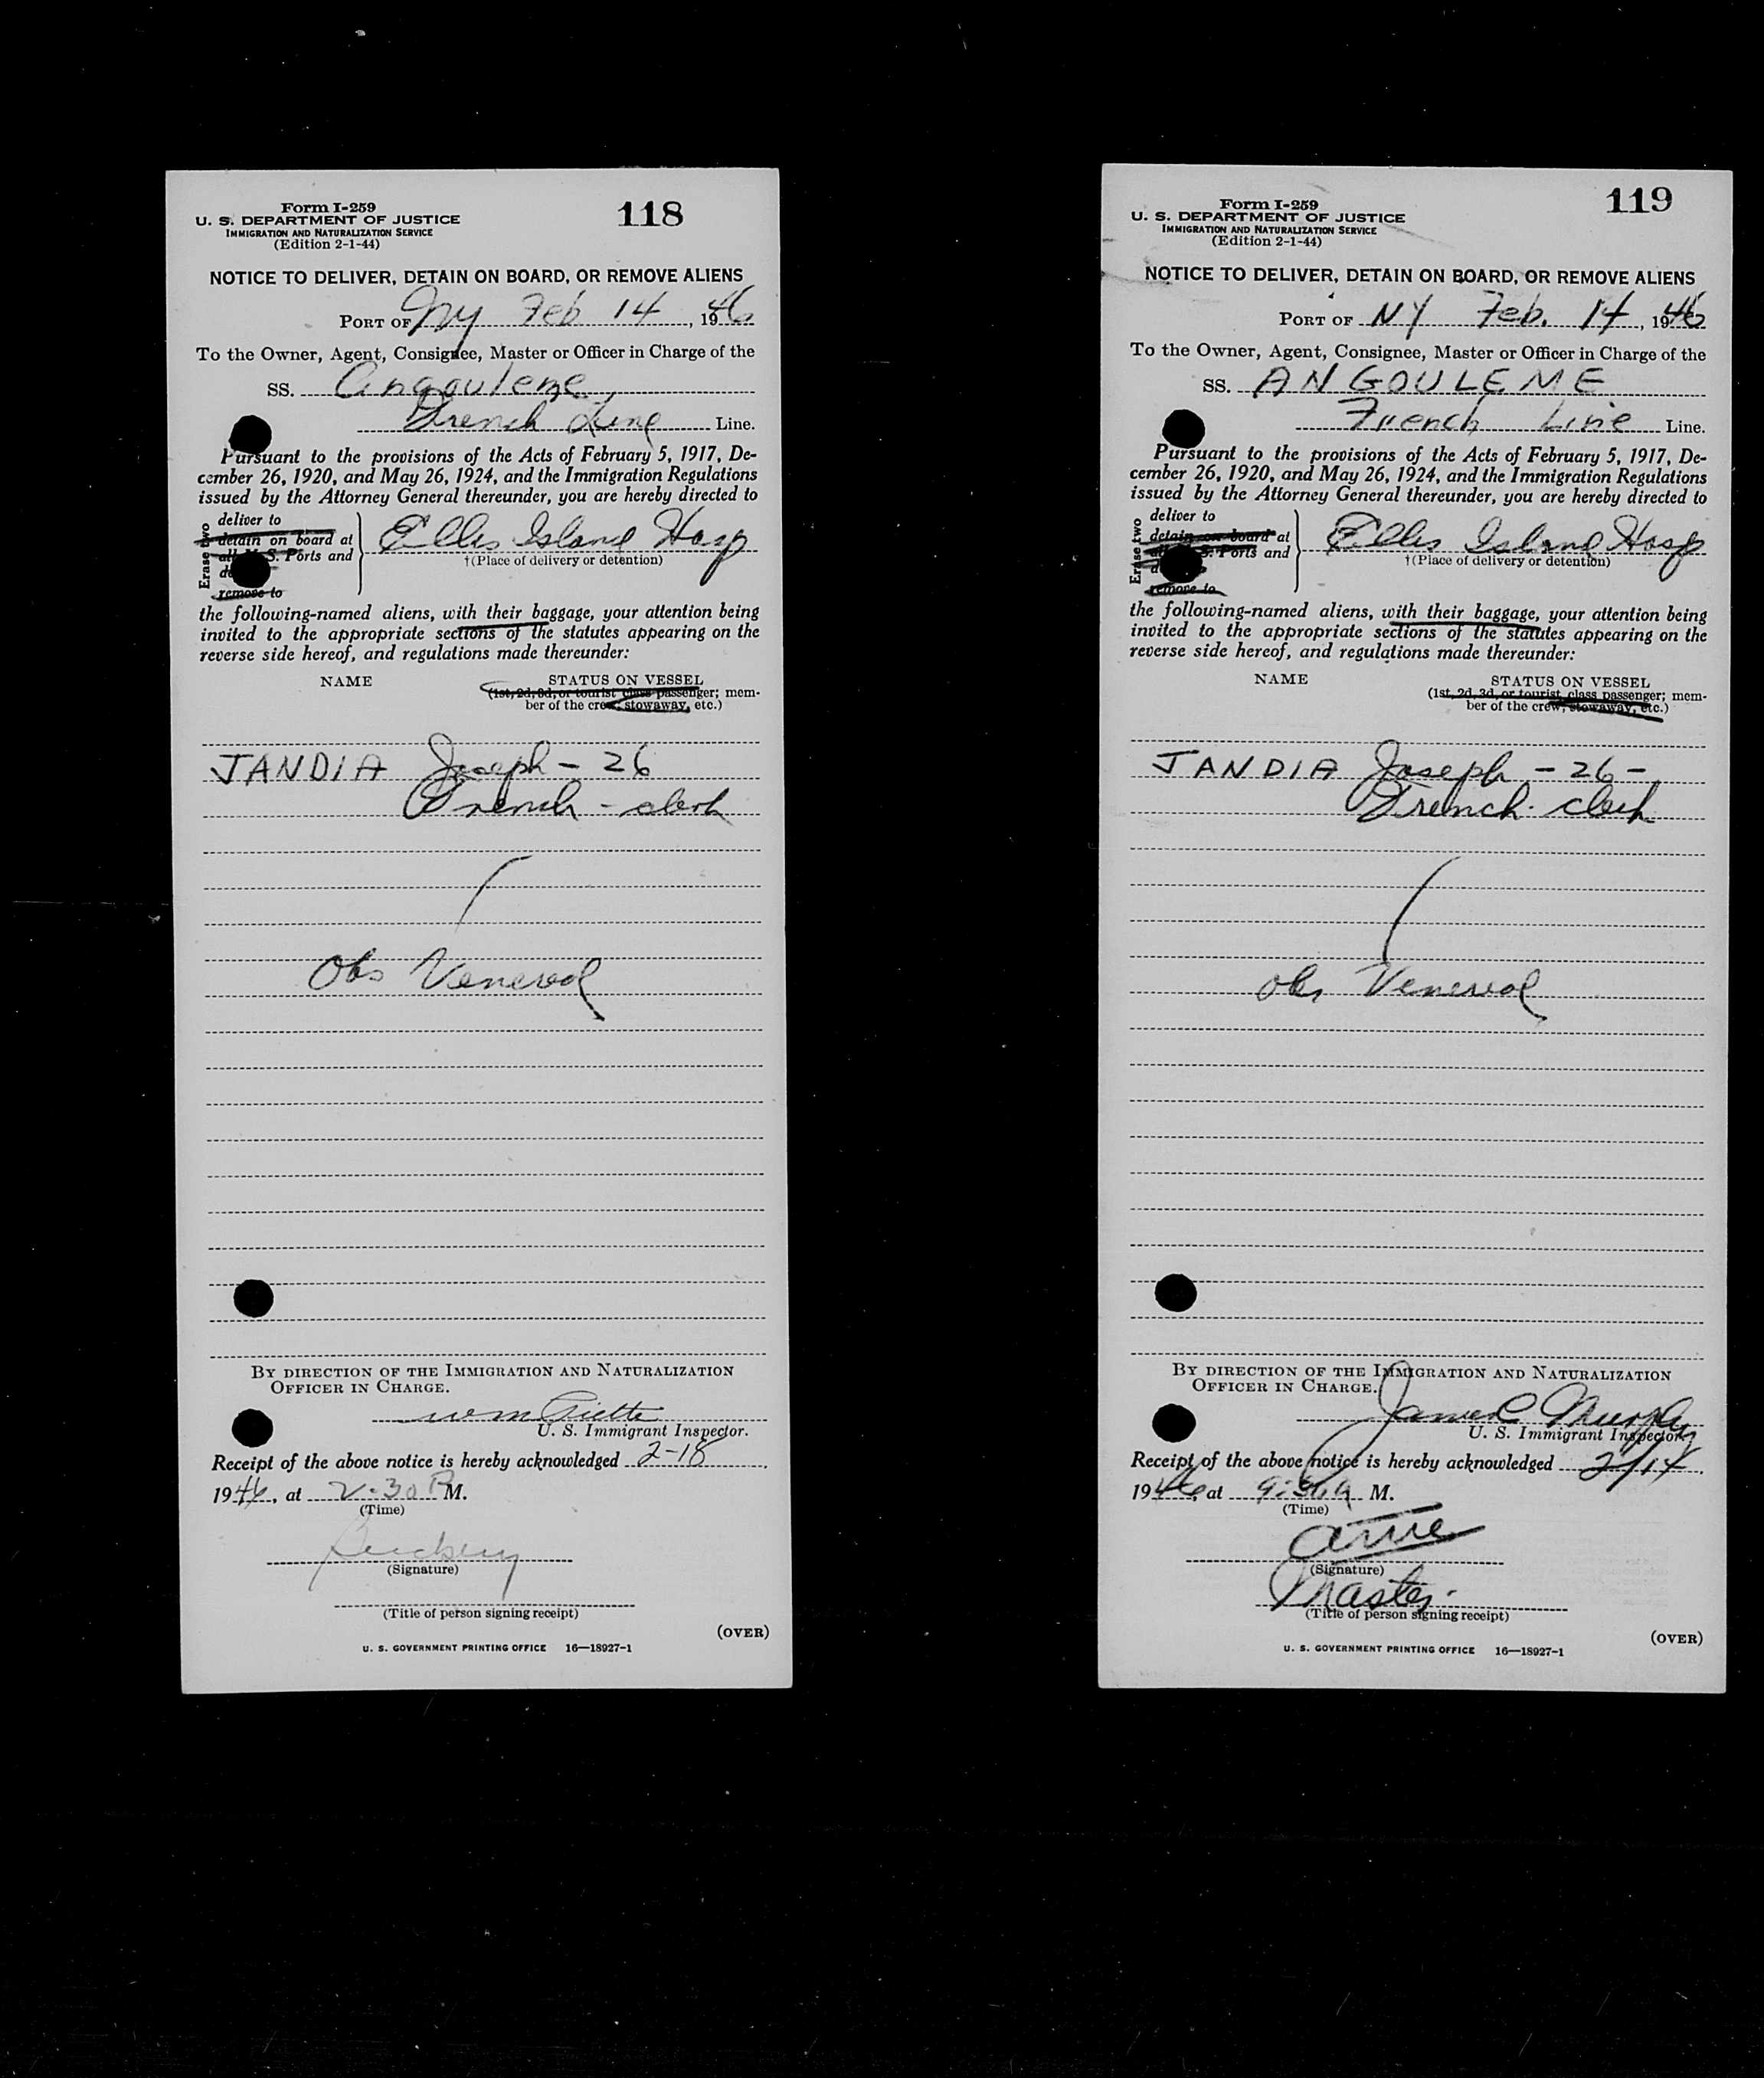 Form I-259
U. S. DEPARTMENT OF JUSTICE
IMMIGRATION AND NATURALIZATION SERVICE
(Edition 2-1-44)
118
NOTICE TO DELIVER, DETAIN ON BOARD, OR REMOVE ALIENS
PORT OF NY Feb 14, 1946
To the Owner, Agent, Consignee, Master or Officer in Charge of the
SS. Angouleme
French Line Line.
Pursuant to the provisions of the Acts of February 5, 1917, De-
cember 26, 1920, and May 26, 1924, and the Immigration Regulations
issued by the Attorney General thereunder, you are hereby directed to
Erase two
deliver to
detain on board at
all U. S. Ports and
remove to
Ellis Island Hosp
†(Place of delivery or detention)
the following-named aliens, with their baggage, your attention being
invited to the appropriate sections of the statutes appearing on the
reverse side hereof, and regulations made thereunder:
NAME
STATUS ON VESSEL
(1st, 2d, 3d, or tourist class passenger; mem-
ber of the crew, stowaway, etc.)
JANDIA Joseph - 26
French - clerk
Obs Venereal
BY DIRECTION OF THE IMMIGRATION AND NATURALIZATION
OFFICER IN CHARGE.
Wm
U. S. Immigrant Inspector.
Receipt of the above notice is hereby acknowledged 2-18,
1946, at 2-30 P M.
(Time)
(Signature)
(Title of person signing receipt)
(OVER)
U. S. GOVERNMENT PRINTING OFFICE 16—18927-1
Form I-259
U. S. DEPARTMENT OF JUSTICE
IMMIGRATION AND NATURALIZATION SERVICE
(Edition 2-1-44)
119
NOTICE TO DELIVER, DETAIN ON BOARD, OR REMOVE ALIENS
PORT OF NY Feb. 14, 1946
To the Owner, Agent, Consignee, Master or Officer in Charge of the
SS. ANGOULEME
French Line Line.
Pursuant to the provisions of the Acts of February 5, 1917, De-
cember 26, 1920, and May 26, 1924, and the Immigration Regulations
issued by the Attorney General thereunder, you are hereby directed to
Erase two
deliver to
detain on board at
all U. S. Ports and
remove to
Ellis Island Hosp
†(Place of delivery or detention)
the following-named aliens, with their baggage, your attention being
invited to the appropriate sections of the statutes appearing on the
reverse side hereof, and regulations made thereunder:
NAME
STATUS ON VESSEL
(1st, 2d, 3d, or tourist class passenger; mem-
ber of the crew, stowaway, etc.)
JANDIA Joseph - 26 -
French - clerk
obs Venereal
BY DIRECTION OF THE IMMIGRATION AND NATURALIZATION
OFFICER IN CHARGE.
James Murphy
U. S. Immigrant Inspector.
Receipt of the above notice is hereby acknowledged 2/14,
1946, at M.
(Time)
(Signature)
Master.
(Title of person signing receipt)
(OVER)
U. S. GOVERNMENT PRINTING OFFICE 16—18927-1